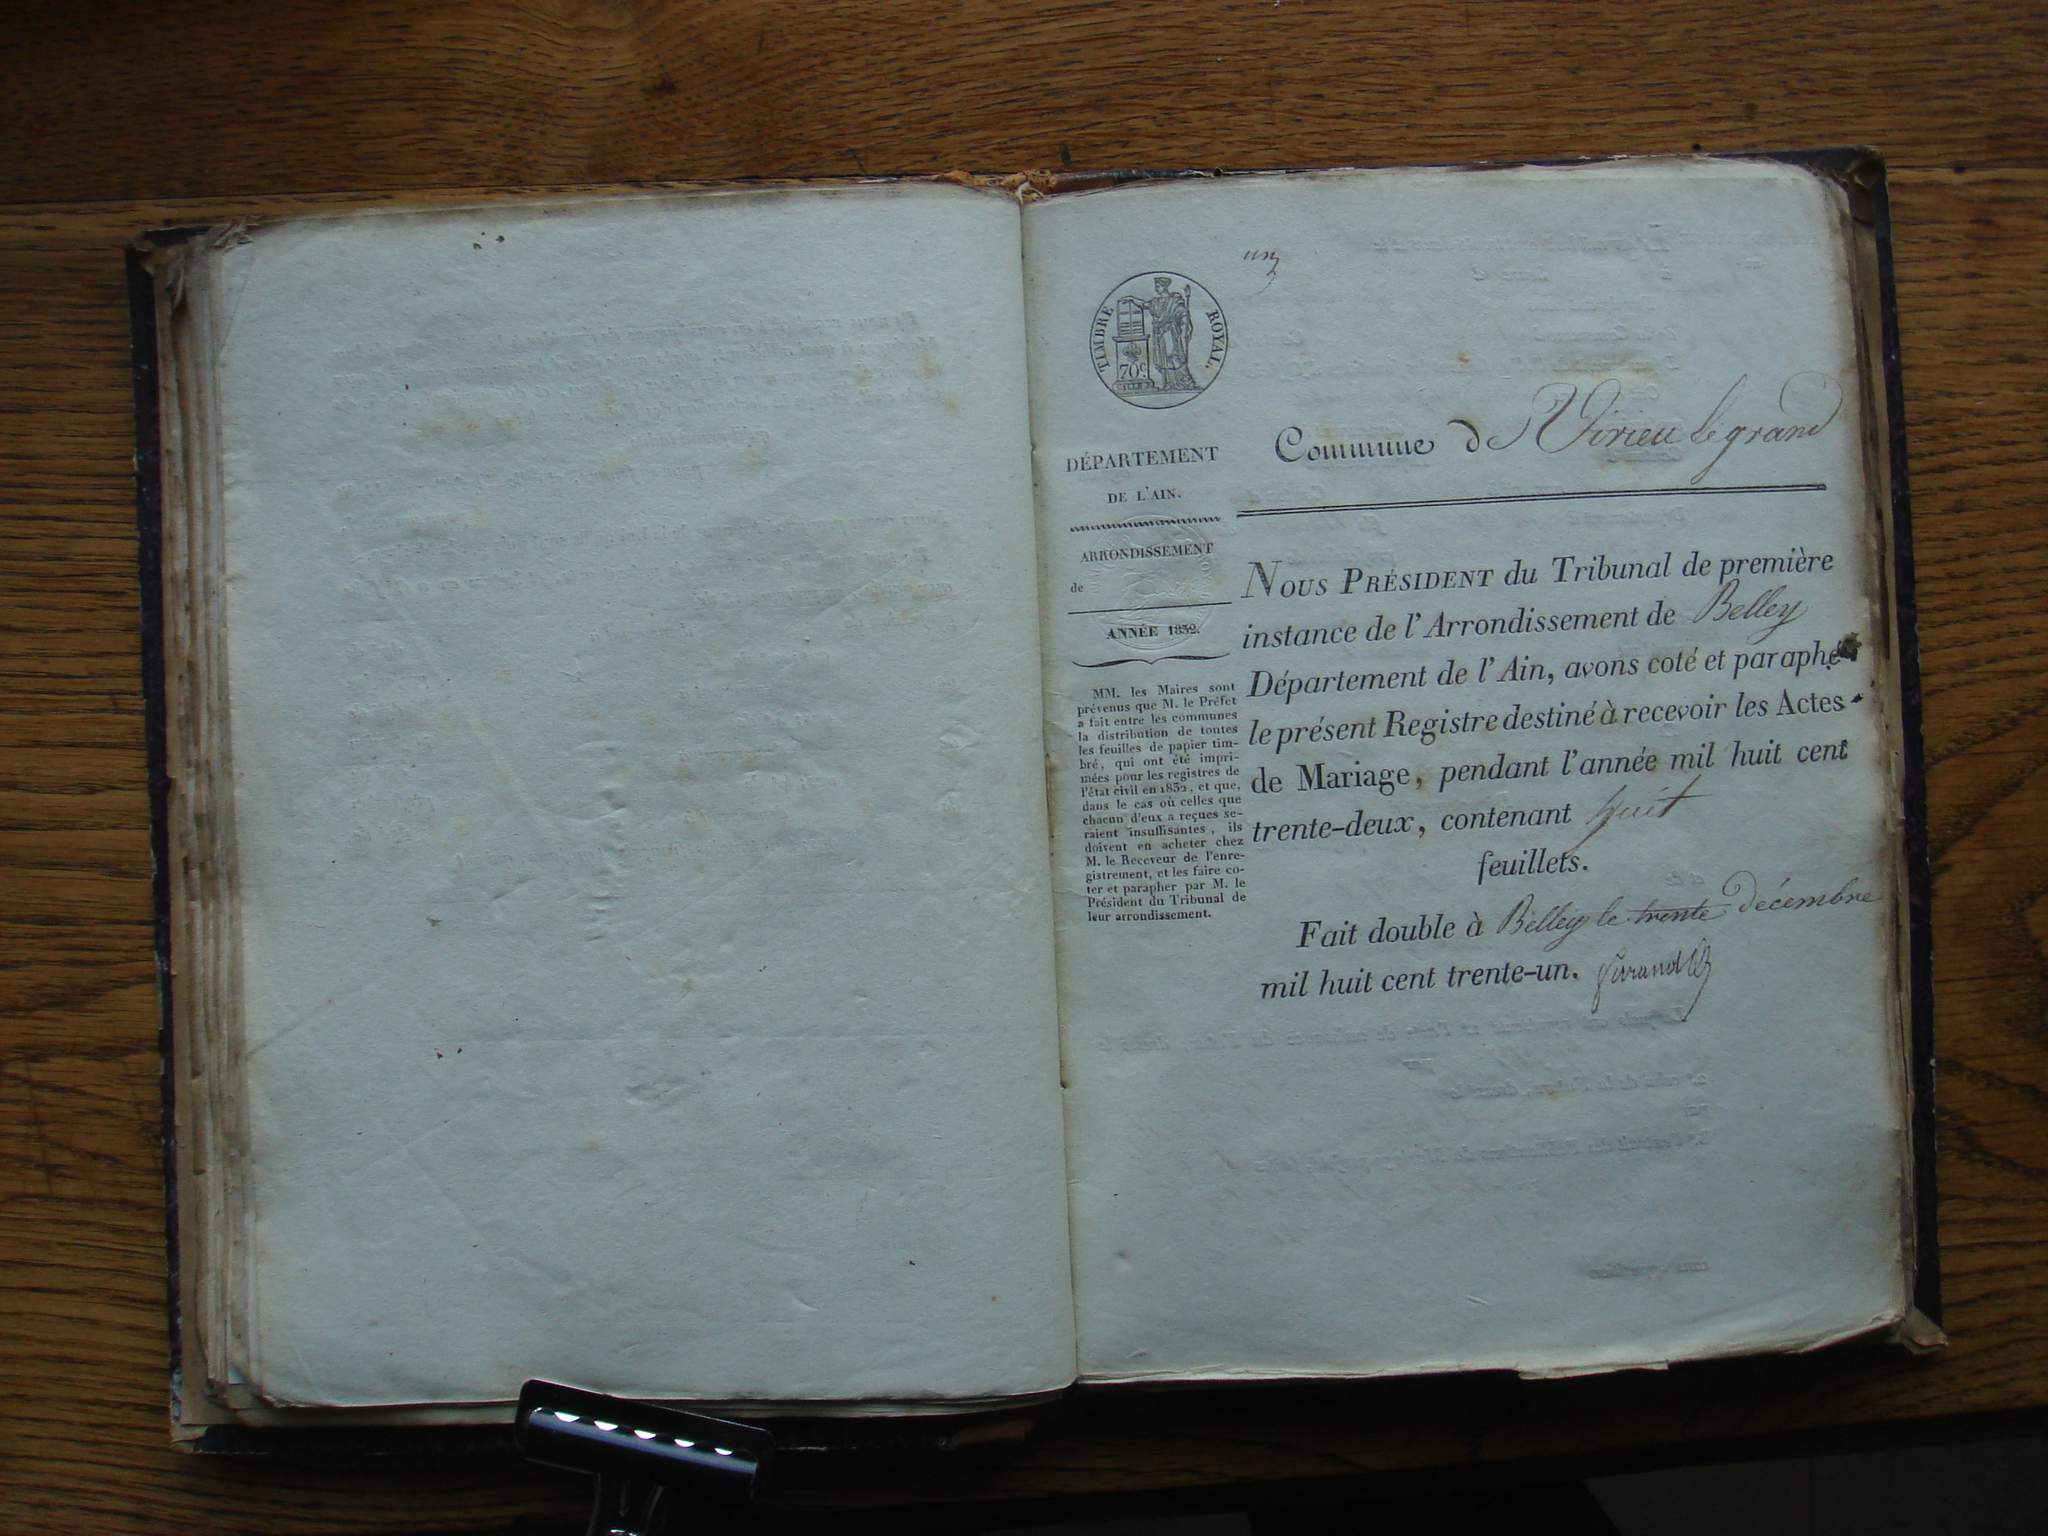 un
TIMBRE ROYAL.
70c.
DÉPARTEMENT
DE L'AIN.
ARRONDISSEMENT
de
ANNÉE 1832.
MM. les Maires sont
prévenus que M. le Préfet
a fait entre les communes
la distribution de toutes
les feuilles de papier tim-
bré, qui ont été impri-
mées pour les registres de
l'état civil en 1832, et que,
dans le cas où celles que
chacun d'eux a reçues se-
raient insuffisantes, ils
doivent en acheter chez
M. le Receveur de l'enre-
gistrement, et les faire co-
ter et parapher par M. le
Président du Tribunal de
leur arrondissement.
Commune de Virieu le grand
NOUS PRÉSIDENT du Tribunal de première
instance de l'Arrondissement de Belley
Département de l'Ain, avons coté et paraphé
le présent Registre destiné à recevoir les Actes
de Mariage, pendant l'année mil huit cent
trente-deux, contenant huit
feuillets.
Fait double à Belley le trente décembre
mil huit cent trente-un.